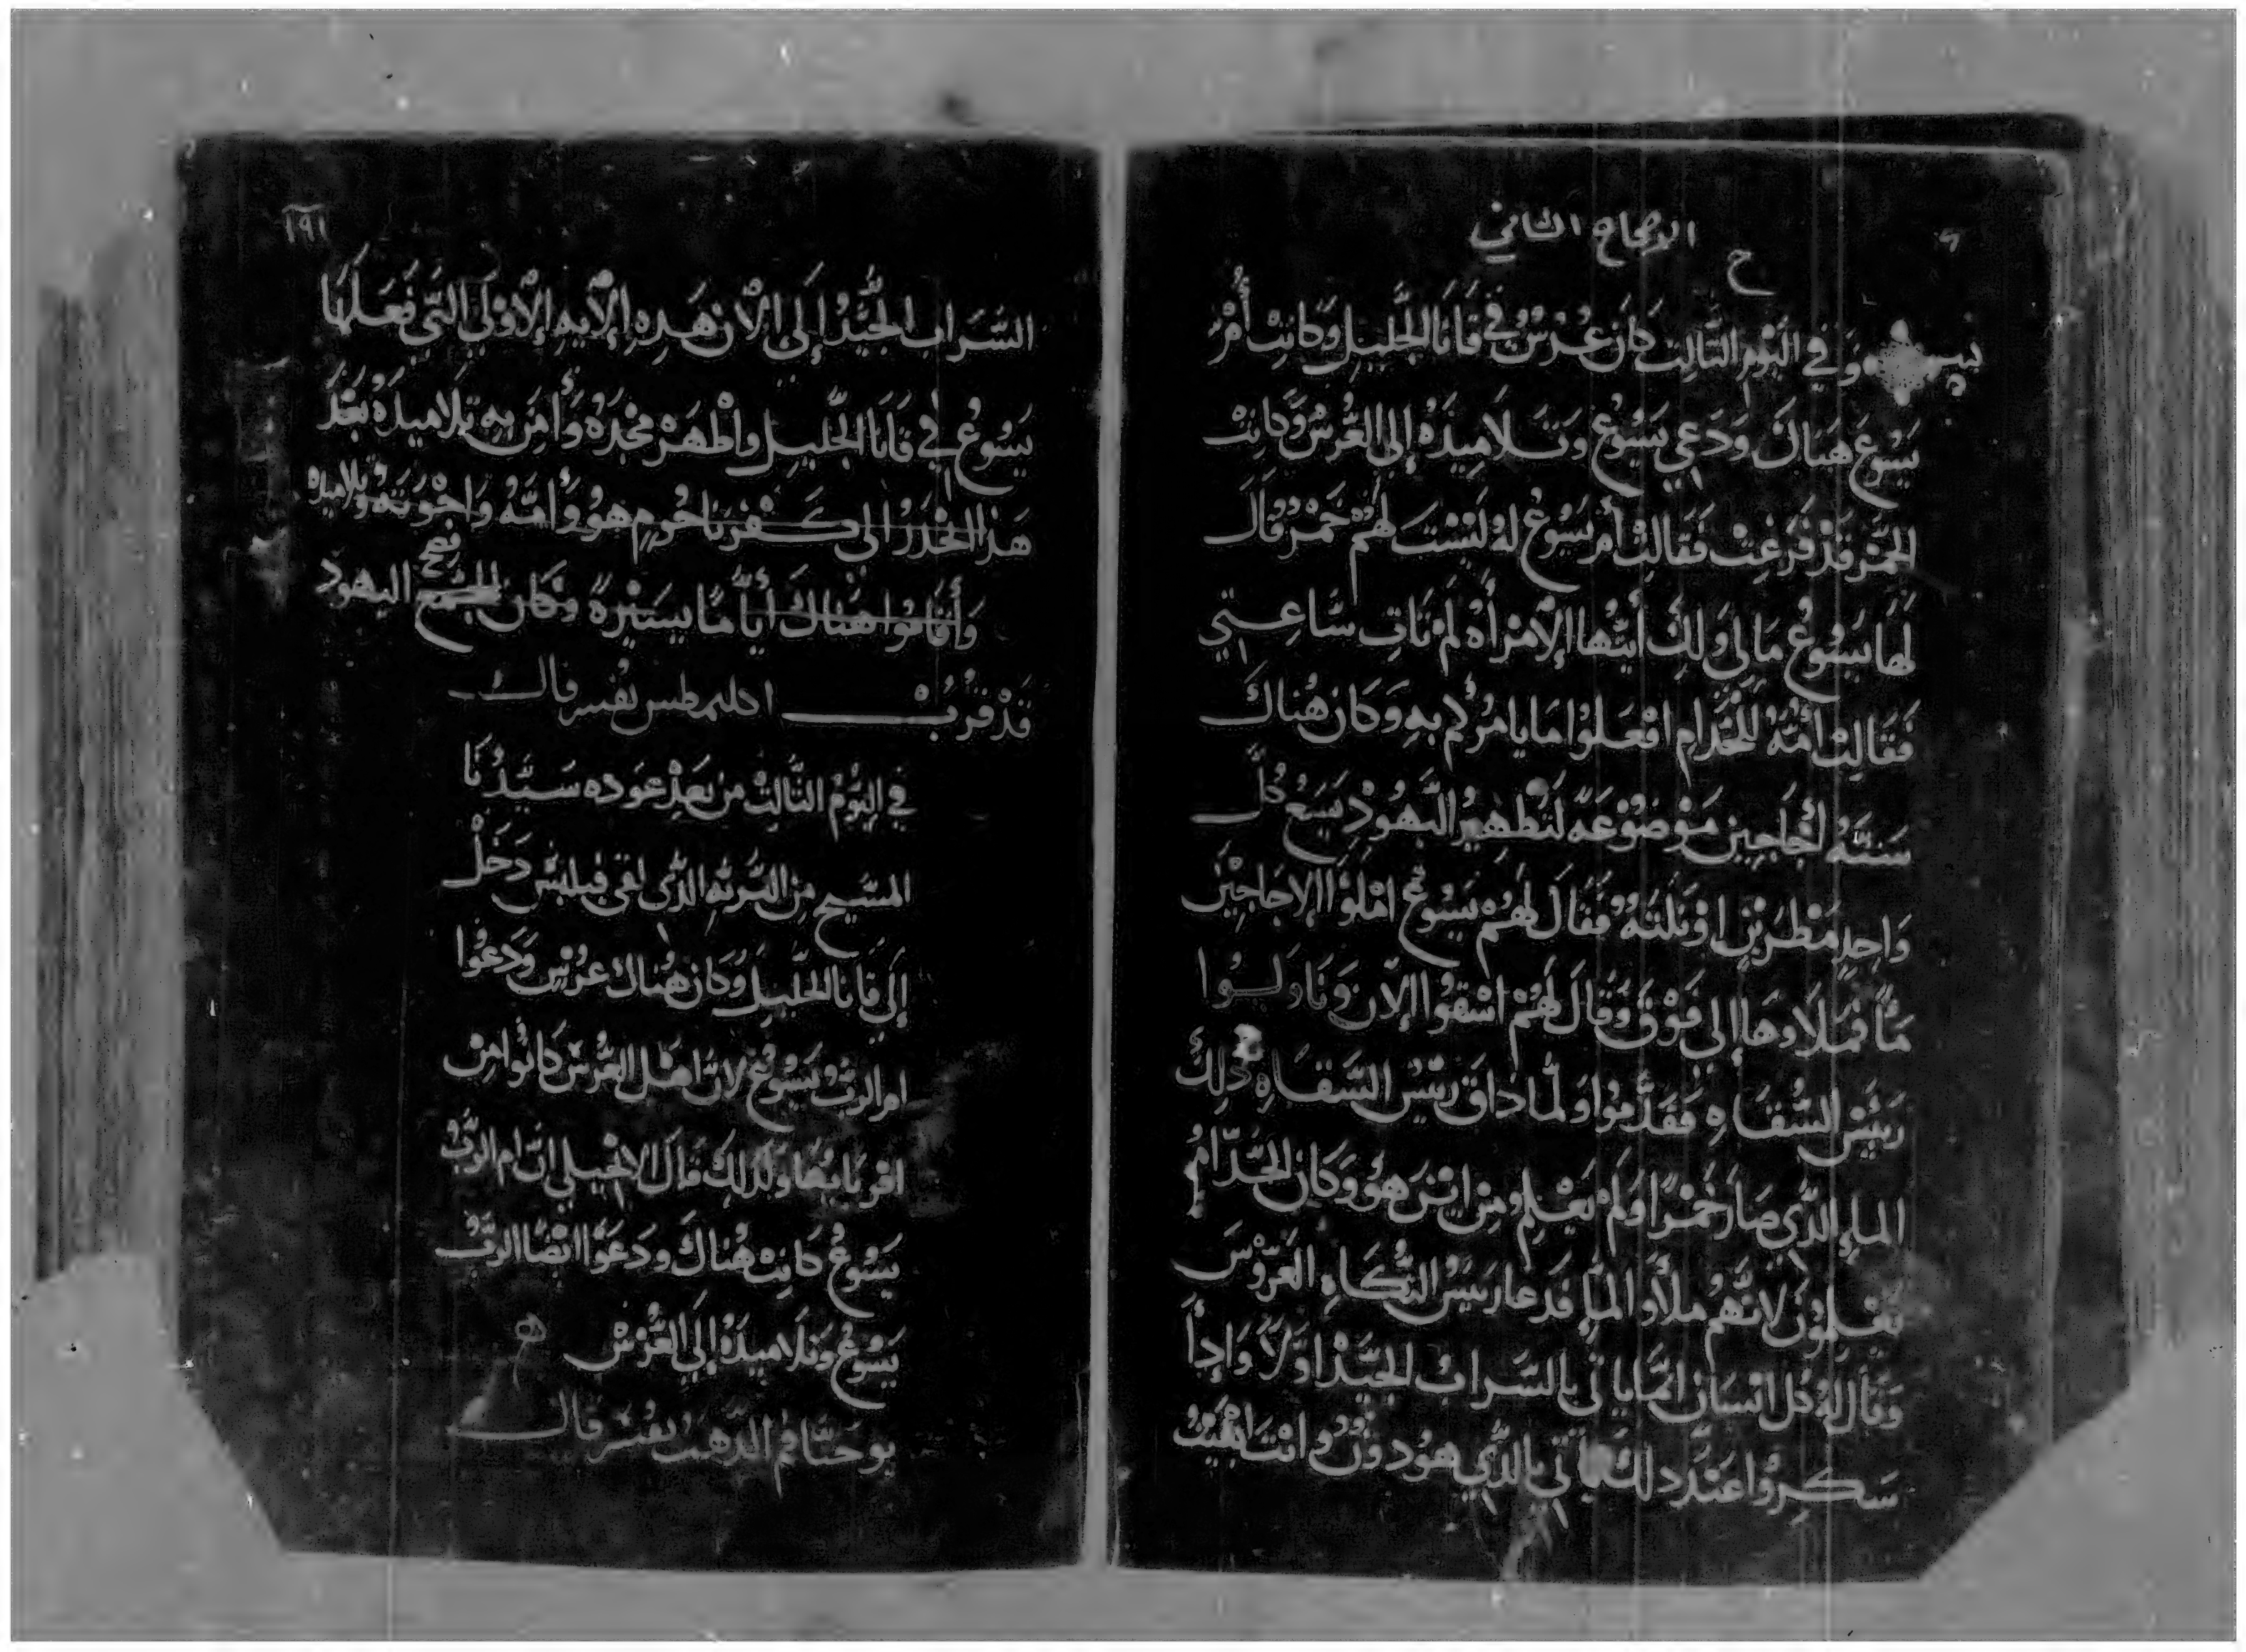 الاصحاح الثاني
وَفي اليَوْم الثَّالِث كَانَ عُرْسٌ في قَانَا الجَليل وَكَانت أُمُّ
يَسُوعَ هُنَاكَ وَدَعِي يَسُوعُ وَتَلَامِيذَهُ إلى العُرْسْ وَكَانت
الخَمر قَدْ فَرغت فَقَالتْ أُم يَسُوعُ لهُ لَيْسَت لَهُمْ خَمْر قَالَ
لَهَا يَسُوعُ مَا لِي وَلكِ أَيَّتُها الإمْرَأَه لَمْ تَاتِ سَّاعِتي
فَقَالت امُّهُ للخُدَّام افْعَلوْا مَا يامُرُكم بهِ وَكَان هُنَاكَ
سَتَّهُ أَجَاجِين مَوْضُوْعَهً لَتَطْهِيْر اليَهُوْدِ يَسَعُ كُلَّ
وَاحِدٍ مَطْرَيْن اوْثَلثَهُ فَقَالَ لَهُمْ يَسُوعُ امْلَوُا الاجَاجِيْن
مَاًّ فمَلاوهَا إلي فَوْق وَقَالَ لَهُمْ اسْتقوا الآن وَنَاوَلوُا
رَئيْس السُّقَاهِ فَقَدَّمُوا وَلمَّا ذَاقَ رئيْسْ السُّقَاهِ ذلِكَ
الماءِ الَّذِي صَارَ خَمْرًا وَلَمْ يَعْلم مِن ايْنَ هُوَ وَكَان الخُدَّامُ
يَعْلمُوْن لانَّهُمْ ملأُو المَاء فَدَعا رَئيسْ المتُّكَاهِ العَرُوْسَ
وَقَال لهُ كُل انسَان انَّما يَاتي بالشَراب الجَيِّدْ اوَّلًا وَإِذَا
سَكِروُا عَنْدَ دلكَ يَاتي بالَّذِي هوُ دوُن وانْتَ ابْقَيْتَ
١٩١
الشَرَاب الجَيِّدْ إلَى الآن هَذِهِ الآيهِ الأُوْلَي الَّتي فَعَلَهَا
يَسُوعُ في قَانَا الجَليل واظهَرَ مَجْدَهُ وَأَمَنَ بِهِ تلاميذهُ بَعْدَ
هَذا انْحَدَرُ الى كَفْرنَاحُوم هوُ وَأُمَّهُ وَاخْوَتَهُ وَتلاميذه
وَأقَاموُا هُنَاكَ أيَّامًا يَسيرهً وَكان فصح اليهود
قَدْ قرُب اكليمطس يفسر قال
في اليَوْمُ الثَّالثْ من بَعْد عَوده سَيِّدْنَا
المسَيح مِن البَّريَّه الَّذى لقى فيلبسْ دَخَلْ
إلَي قَانا الجَليْل وَكَان هُنَاك عرْسٌ وَدَعُوا
ام الربُّ يَسُوعُ لانَّ اهْل العُرْسْ كَانُوا مِنْ
اقربَايهَا وَلذلكَ قَالَ الانجيلي انَّ ام الرَّبُّ
يَسُوعُ كَانتْ هُنَاكَ وَدَعَوْا ايْضًا الرَّبُّ
يَسُوعُ وَتَلَاميذهُ إلَى العُرْسْ
يوحَنَّا فم الدَّهَبُ يفُسَر قال